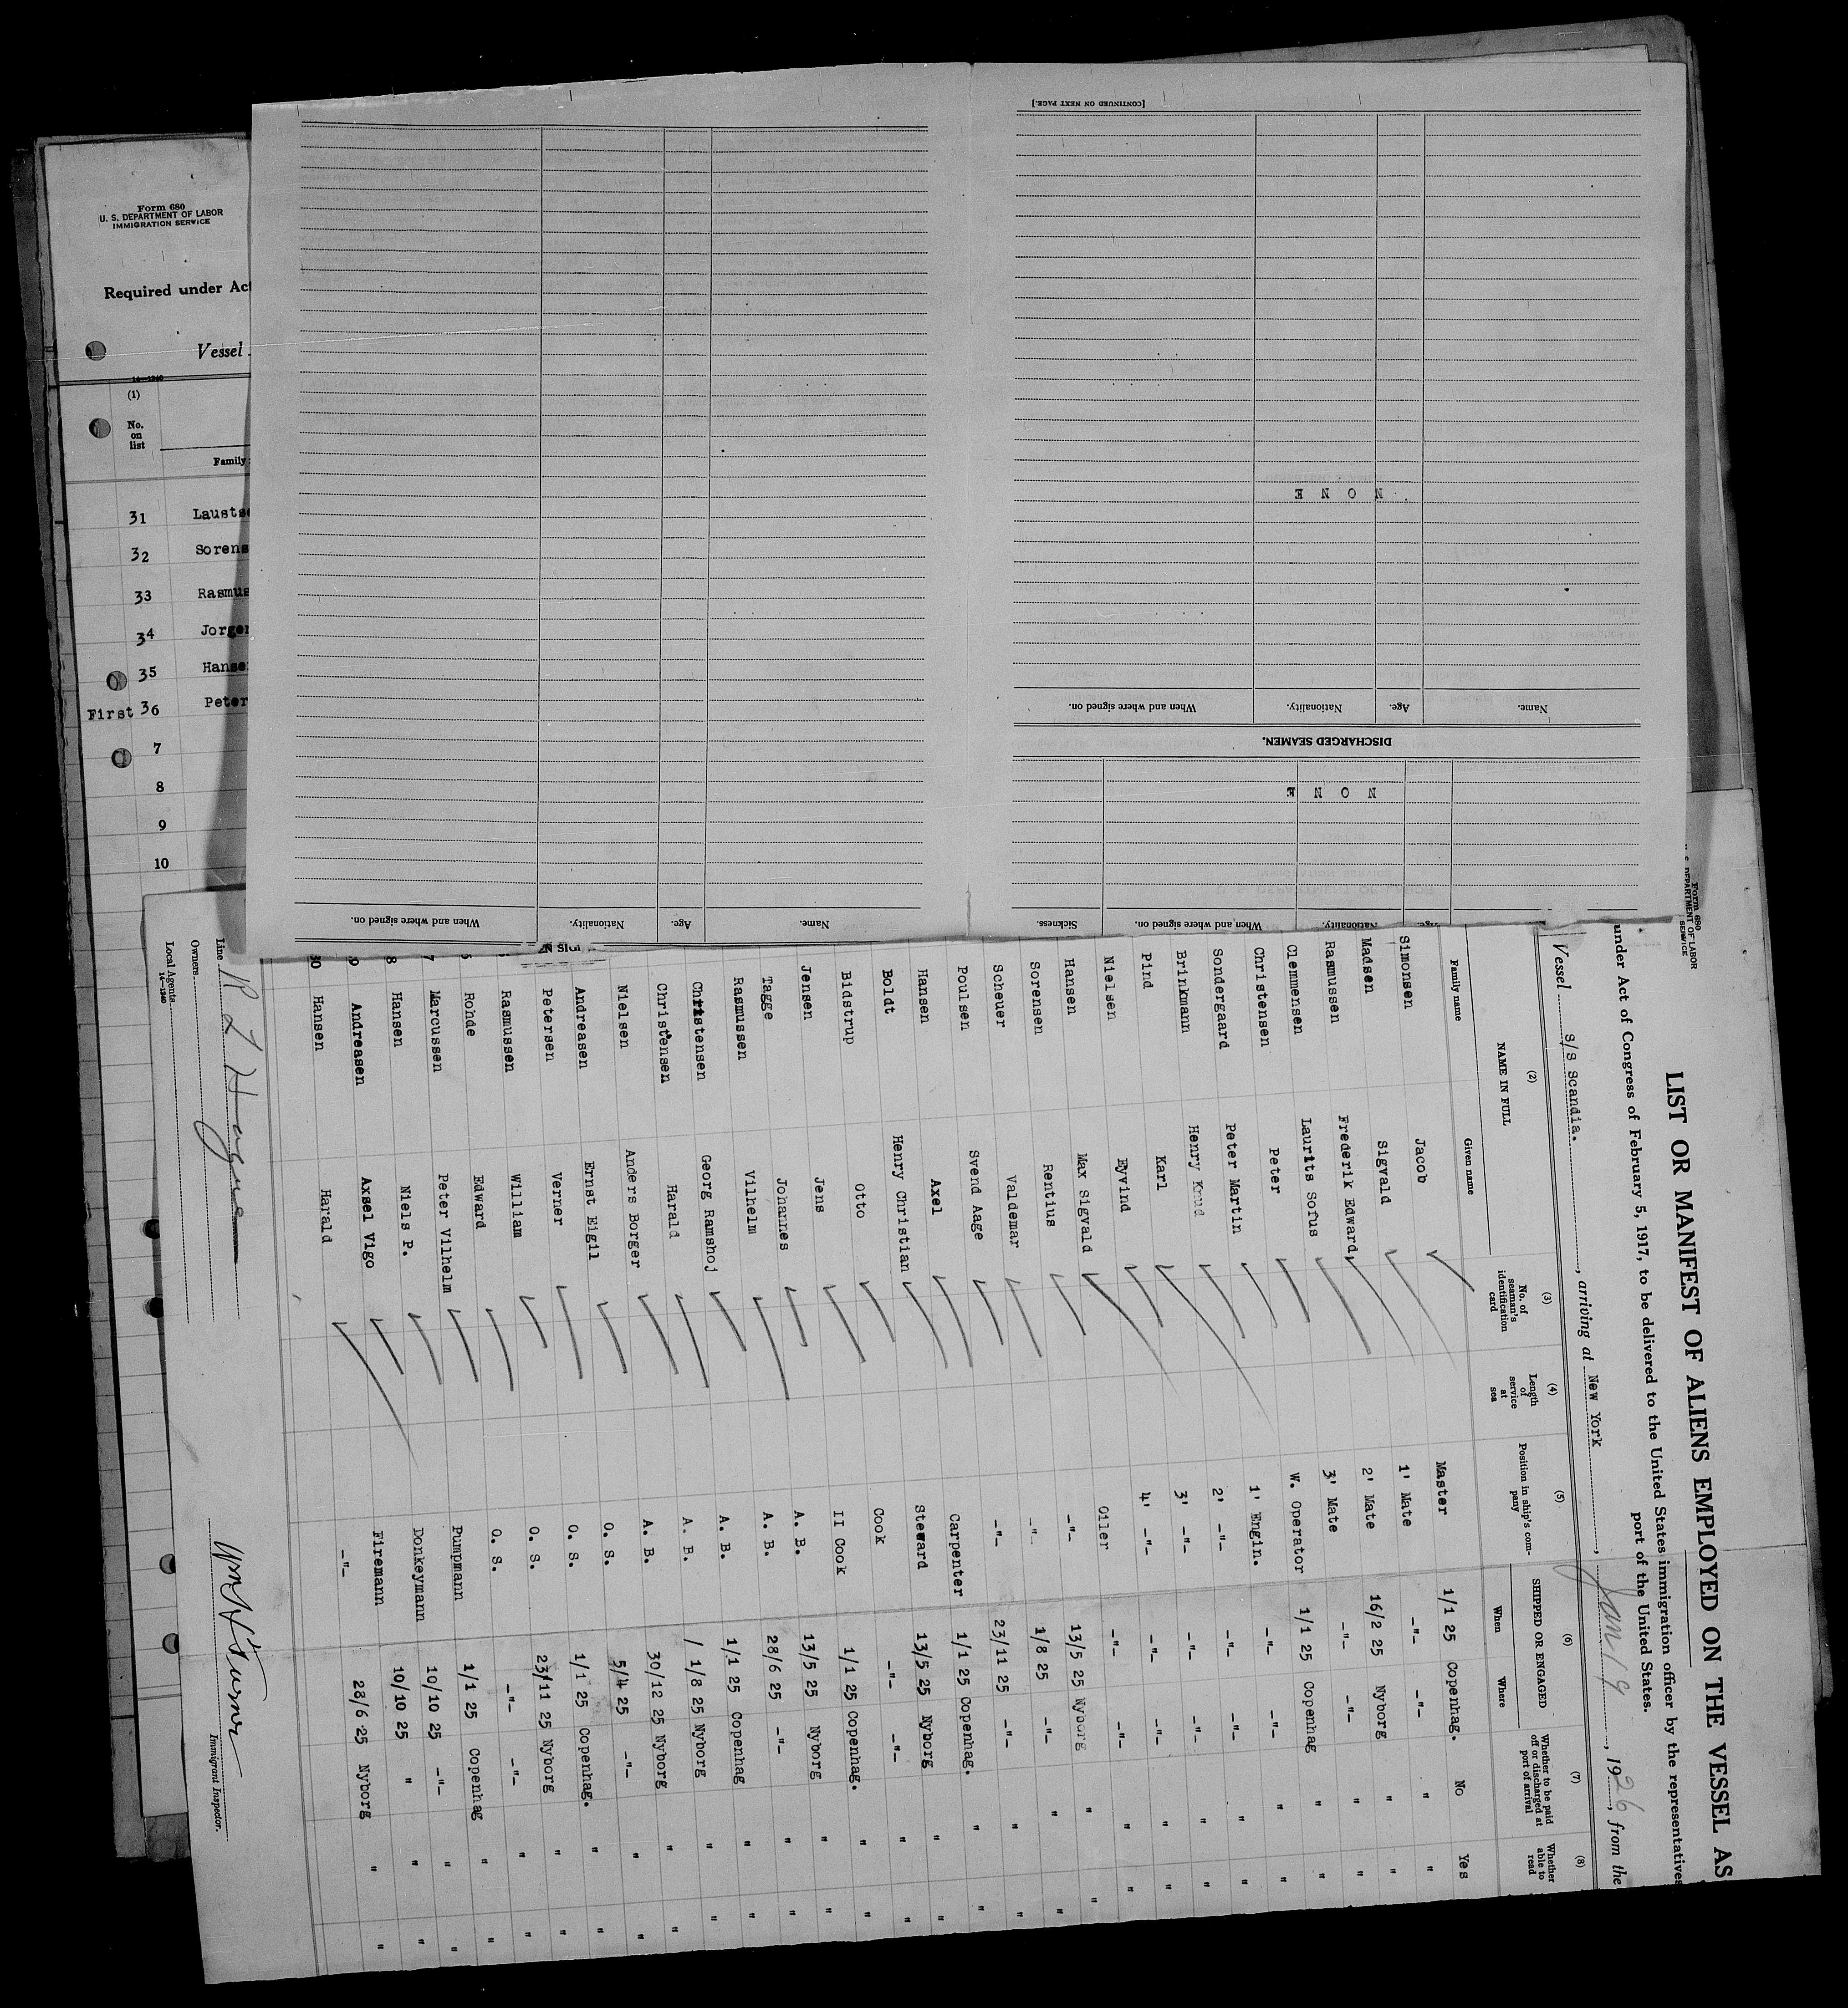 Form 680
U. S. DEPARTMENT OF LABOR
IMMIGRATION SERVICE
Required under Act
Vessel
14—1240
(1)
No. on list
Family
31 Laustse
32 Sorens
33 Rasmus
34 Jorgen
35 Hanse
First 36 Peter
7
8
9
10
[CONTINUED ON NEXT PAGE.]
Name. Age. Nationality. When and where signed on. Sickness.
NONE
DISCHARGED SEAMEN.
Name. Age. Nationality. When and where signed on.
NONE
Name. Age. Nationality. When and where signed on.
Form 680
U. S. DEPARTMENT OF LABOR
IMMIGRATION SERVICE
LIST OR MANIFEST OF ALIENS EMPLOYED ON THE VESSEL AS
under Act of Congress of February 5, 1917, to be delivered to the United States immigration officer by the representatives
port of the United States.
Vessel S/S Scandia., arriving at New York, Jan 19, 1926, from the
(2) (3) (4) (5) (6) (7) (8)
NAME IN FULL
Family name Given name
No. of seaman's identification card
Length of service at sea
Position in ship's company
SHIPPED OR ENGAGED
When Where
Whether to be paid off or discharged at port of arrival
Whether able to read
Simonsen Jacob Master 1/1 25 Copenhag. No Yes
Madsen Sigvald 1' Mate -"- -"- " "
Rasmussen Frederik Edward, 2' Mate 16/2 25 Nyborg " "
Clemmensen Laurits Sofus 3' Mate -"- -"- " "
Christensen Peter W. Operator 1/1 25 Copenhag " "
Sondergaard Peter Martin 1' Engin. -"- -"- " "
Brinkmann Henry Knud 2' -"- -"- -"- " "
Pind Karl 3' -"- -"- -"- " "
Nielsen Eyvind 4' -"- -"- -"- " "
Hansen Max Sigvald Oiler -"- -"- " "
Sorensen Rentius -"- 13/5 25 Nyborg " "
Scheuer Valdemar -"- 1/8 25 -"- " "
Poulsen Svend Aage -"- 23/11 25 -"- " "
Hansen Axel Carpenter 1/1 25 Copenhag. " "
Boldt Henry Christian Steward 13/5 25 Nyborg " "
Bidstrup Otto Cook -"- -"- " "
Jensen Jens II Cook 1/1 25 Copenhag. " "
Tagge Johannes A. B. 13/5 25 Nyborg " "
Rasmussen Vilhelm A. B. 28/6 25 -"- " "
Christensen Georg Ramshoj A. B. 1/1 25 Copenhag " "
Christensen Harald A. B. / 1/8 25 Nyborg " "
Nielsen Anders Borger A. B. 30/12 25 Nyborg " "
Andreasen Ernst Eigil O. S. 5/4 25 -"- " "
Petersen Verner O. S. 1/1 25 Copenhag. " "
Rasmussen William O. S. 23/11 25 Nyborg " "
Rohde Edward O. S. -"- -"- " "
7 Marcussen Peter Vilhelm Pumpmann 1/1 25 Copenhag " "
8 Hansen Niels P. Donkeymann 10/10 25 -"- " "
9 Andreasen Axsel Vigo Firemann 10/10 25 " " "
30 Hansen Harald -"- 28/6 25 Nyborg " "
Line
Owners
Local Agents
14—1240
Immigrant Inspector.